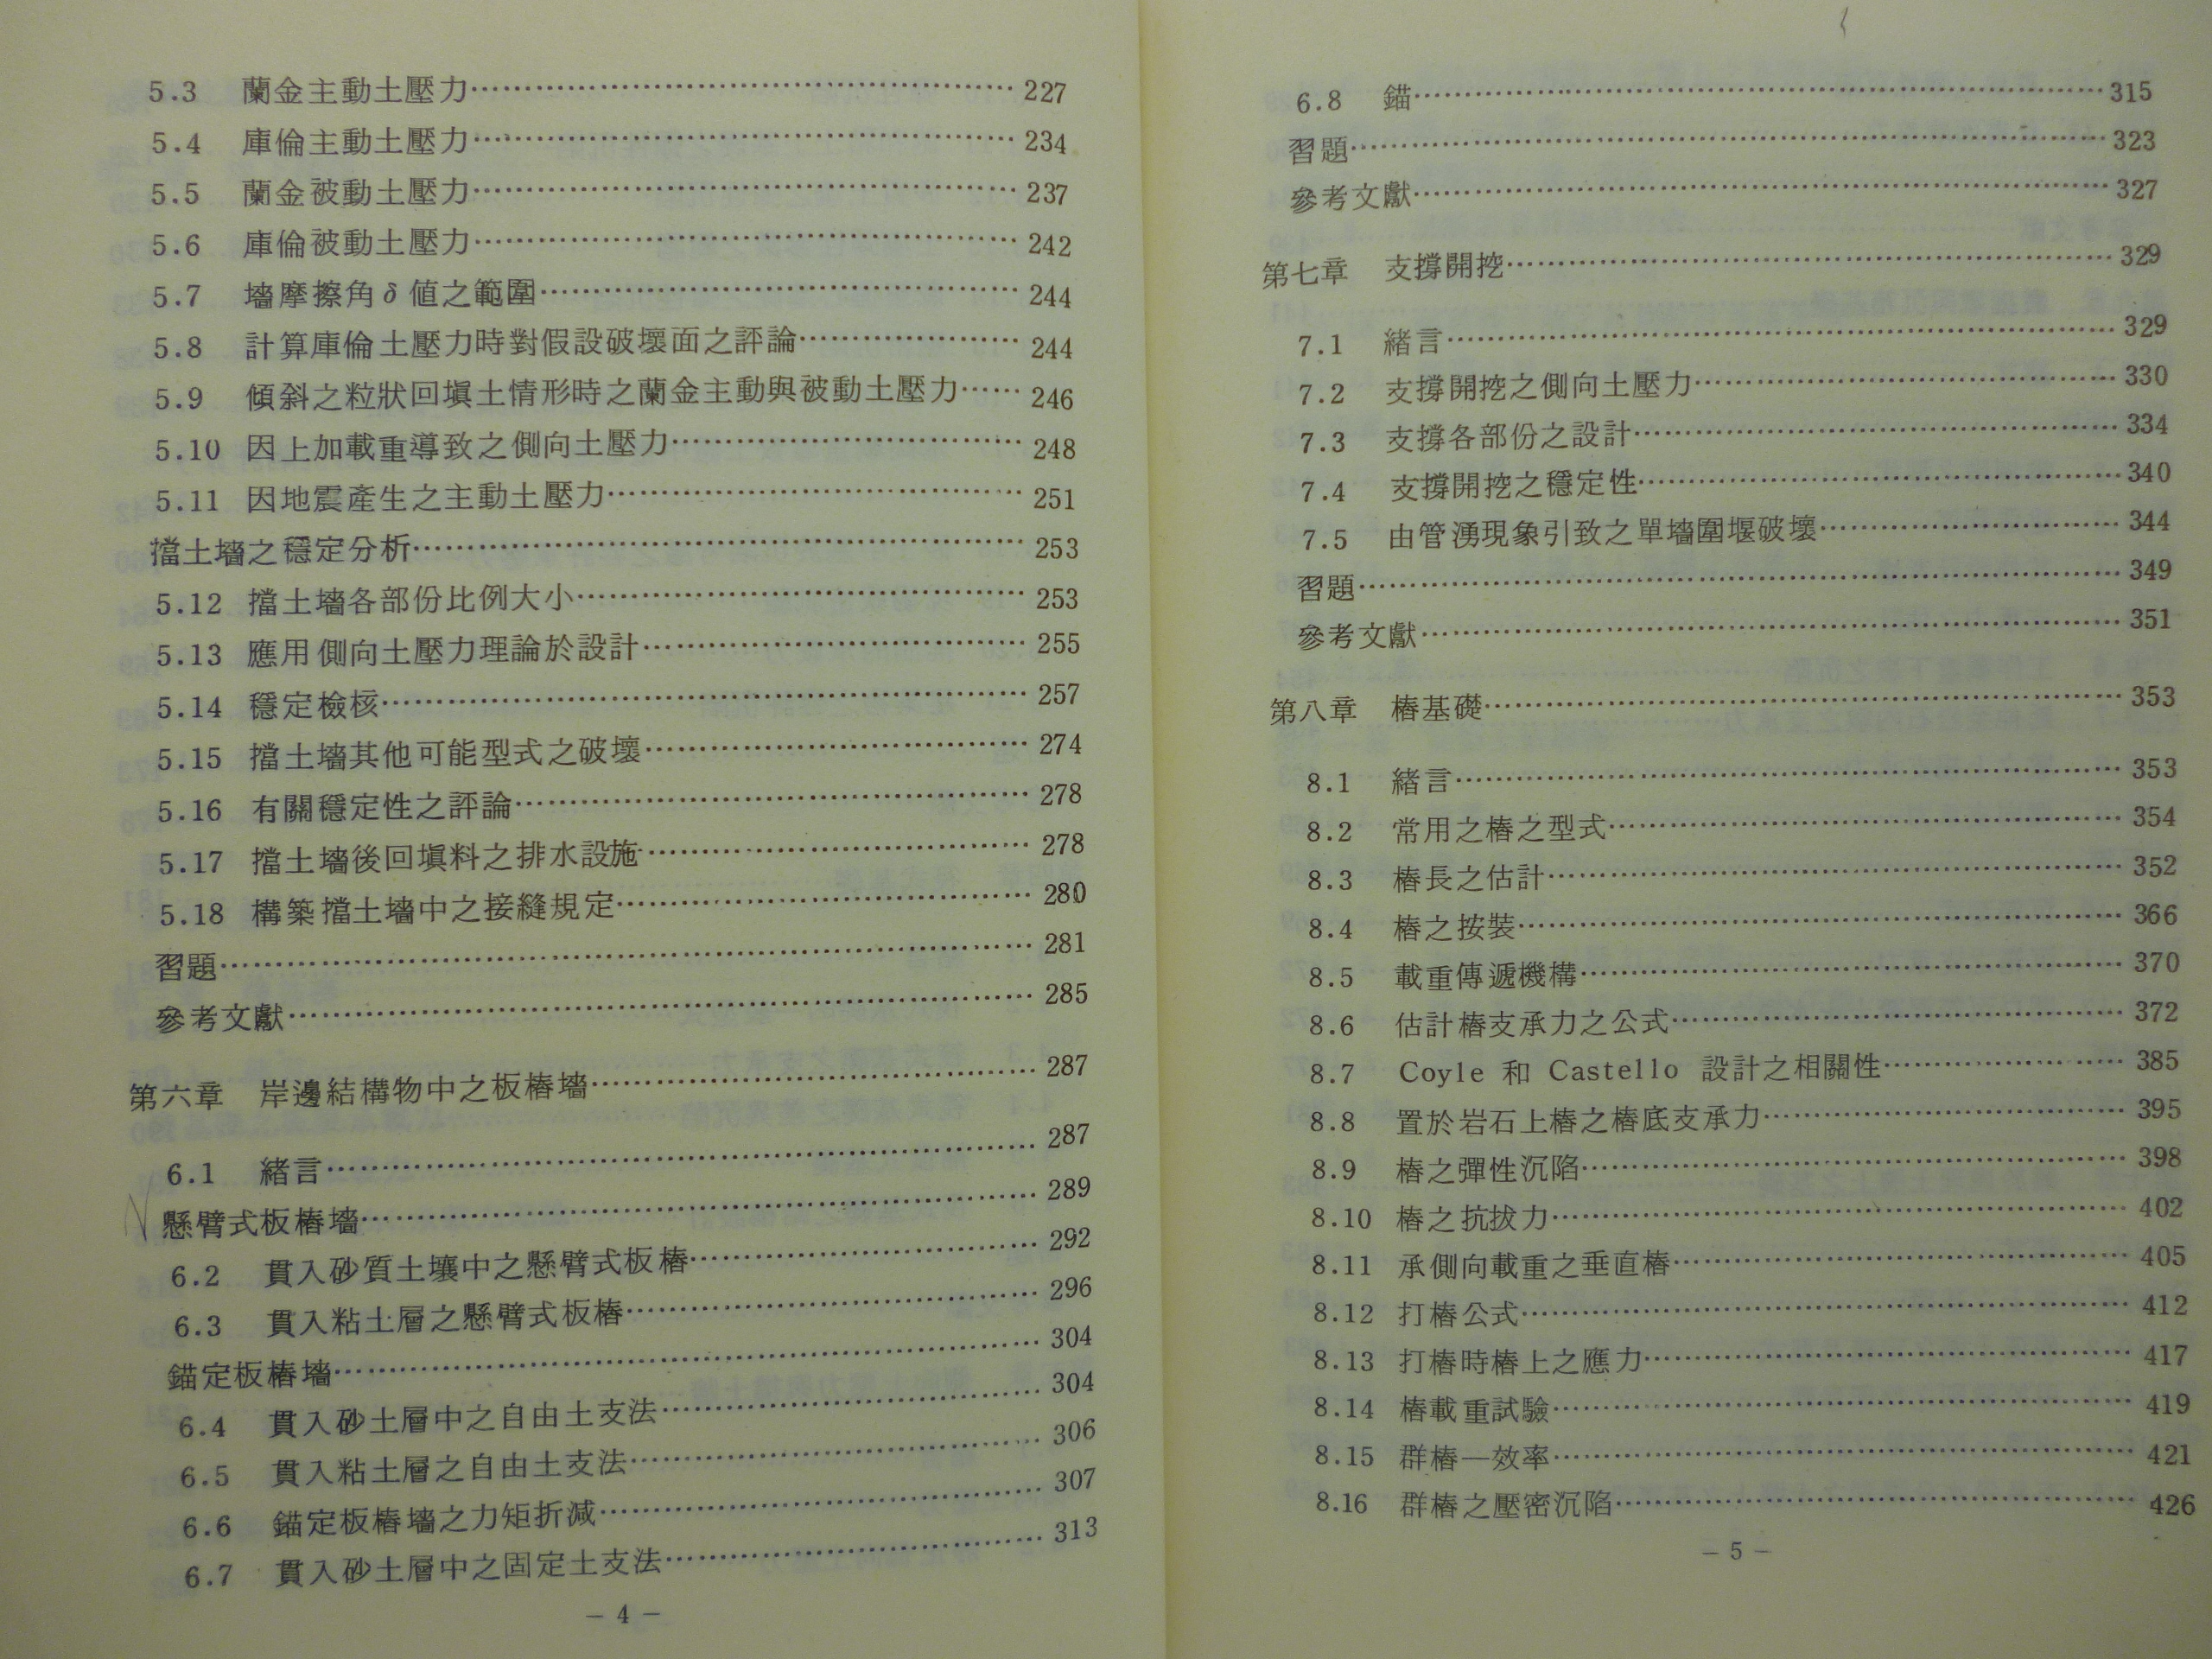 5.3 蘭金主動土壓力…………………………………………227
5.4 庫倫主動土壓力…………………………………………234
5.5 蘭金被動土壓力…………………………………………237
5.6 庫倫被動土壓力…………………………………………242
5.7 墻摩擦角δ值之範圍……………………………………244
5.8 計算庫倫土壓力時對假設破壞面之評論………………244
5.9 傾斜之粒狀回填土情形時之蘭金主動與被動土壓力……246
5.10 因上加載重導致之側向土壓力…………………………248
5.11 因地震產生之主動土壓力………………………………251
擋土墻之穩定分析……………………………………………253
5.12 擋土墻各部份比例大小…………………………………253
5.13 應用側向土壓力理論於設計……………………………255
5.14 穩定檢核…………………………………………………257
5.15 擋土墻其他可能型式之破壞……………………………274
5.16 有關穩定性之評論………………………………………278
5.17 擋土墻後回填料之排水設施……………………………278
5.18 構築擋土墻中之接縫規定………………………………280
習題……………………………………………………………281
參考文獻………………………………………………………285
第六章 岸邊結構物中之板樁墻………………………………287
6.1 緒言………………………………………………………287
懸臂式板樁墻…………………………………………………289
6.2 貫入砂質土壤中之懸臂式板樁…………………………292
6.3 貫入粘土層之懸臂式板樁………………………………296
錨定板樁墻……………………………………………………304
6.4 貫入砂土層中之自由土支法……………………………304
6.5 貫入粘土層之自由土支法………………………………306
6.6 錨定板樁墻之力矩折減…………………………………307
6.7 貫入砂土層中之固定土支法……………………………313
– 4 –
6.8 錨…………………………………………………………315
習題……………………………………………………………323
參考文獻………………………………………………………327
第七章 支撐開挖………………………………………………329
7.1 緒言………………………………………………………329
7.2 支撐開挖之側向土壓力…………………………………330
7.3 支撐各部份之設計………………………………………334
7.4 支撐開挖之穩定性………………………………………340
7.5 由管湧現象引致之單墻圍堰破壞………………………344
習題……………………………………………………………349
參考文獻………………………………………………………351
第八章 樁基礎…………………………………………………353
8.1 緒言………………………………………………………353
8.2 常用之樁之型式…………………………………………354
8.3 樁長之估計………………………………………………352
8.4 樁之按裝…………………………………………………366
8.5 載重傳遞機構……………………………………………370
8.6 估計樁支承力之公式……………………………………372
8.7 Coyle 和 Castello 設計之相關性………………………385
8.8 置於岩石上樁之樁底支承力……………………………395
8.9 樁之彈性沉陷……………………………………………398
8.10 樁之抗拔力………………………………………………402
8.11 承側向載重之垂直樁……………………………………405
8.12 打樁公式…………………………………………………412
8.13 打樁時樁上之應力………………………………………417
8.14 樁載重試驗………………………………………………419
8.15 群樁—效率………………………………………………421
8.16 群樁之壓密沉陷…………………………………………426
– 5 –